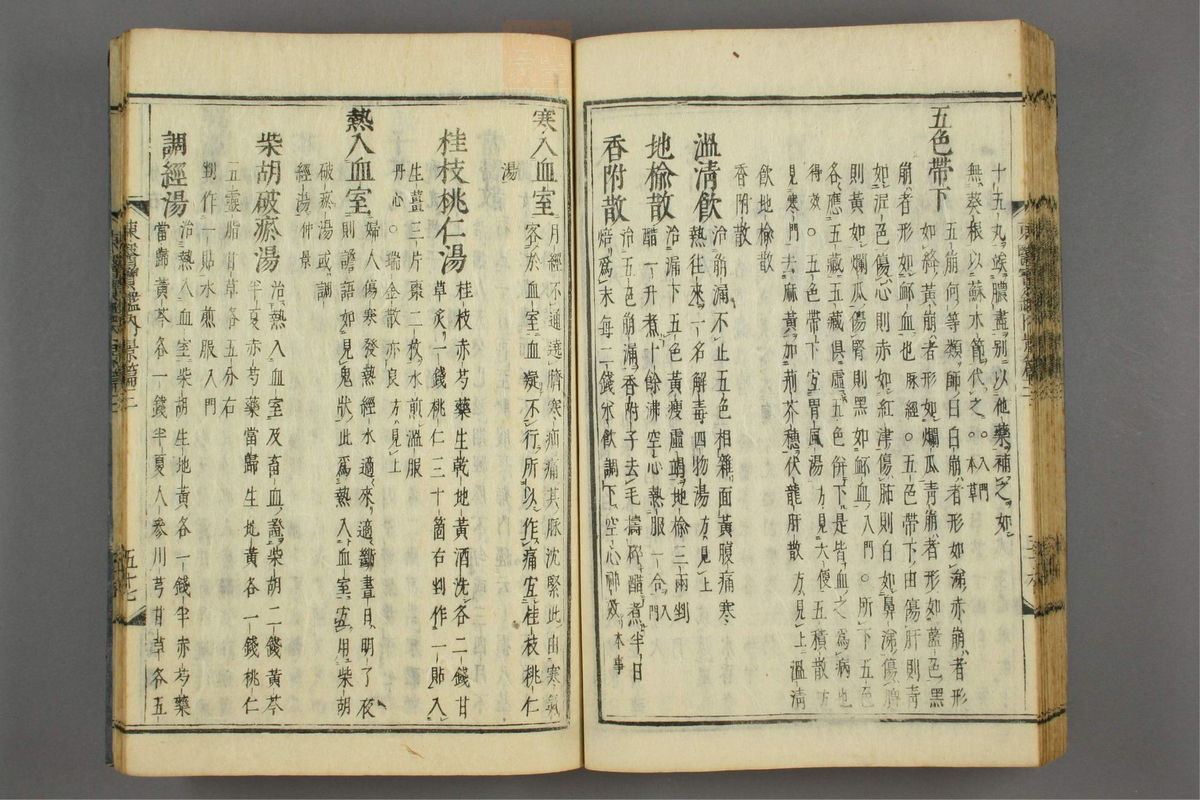 十五丸候膿盡別以他藥補之如
無葵根以蘇水節代之○入門○本草
五色帶下
五崩何等類師曰白崩者形如涕赤崩者形
如絳黃崩者形如爛瓜青崩者形如藍色黑
崩者形如衃血也脉經○五色帶下由傷肝則青
如泥色傷心則赤如紅津傷肺則白如鼻涕傷脾
則黃如爛瓜傷腎則黑如衃血入門○所下五色
各應五藏五藏俱虛五色併下是皆血之爲病也
得效○五色帶下宜胃風湯方見大便五積散方
見寒門去麻黃加荊芥穗伏龍肝散方見上溫淸
飮地楡散
香附散
溫淸飮
治崩漏不止五色相雜面黃腹痛寒
熱往來一名解毒四物湯方見上
地楡散
治漏下五色黃瘦虛竭地楡三兩剉
醋一升煮十餘沸空心熱服一合入門
香附散
治五色崩漏香附子去毛擣碎醋煮半日
焙爲末每二錢米飮調下空心服本事
寒入血室
月經不通遶臍寒疝痛其脉沈緊此由寒氣
客於血室血凝不行所以作痛宜桂枝桃仁
湯
桂枝桃仁湯
桂枝赤芍藥生乾地黃酒洗各二錢甘
草炙一錢桃仁三十箇右剉作一貼入
生薑三片棗二枚水煎溫服
丹心○瑞金散亦良方見上
熱入血室
婦人傷寒發熱經水適來適斷晝日明了夜
則譫語如見鬼狀此爲熱入血室宜用柴胡
破瘀湯或調
經湯仲景
柴胡破瘀湯
治熱入血室及畜血證柴胡二錢黃芩
半夏赤芍藥當歸生地黃各一錢桃仁
五靈脂甘草各五分右
剉作一貼水煎服入門
調經湯
治熱入血室柴胡生地黃各一錢半赤芍藥
當歸黃芩各一錢半夏人參川芎甘草各五
東醫寶鑑內景篇三
五十七